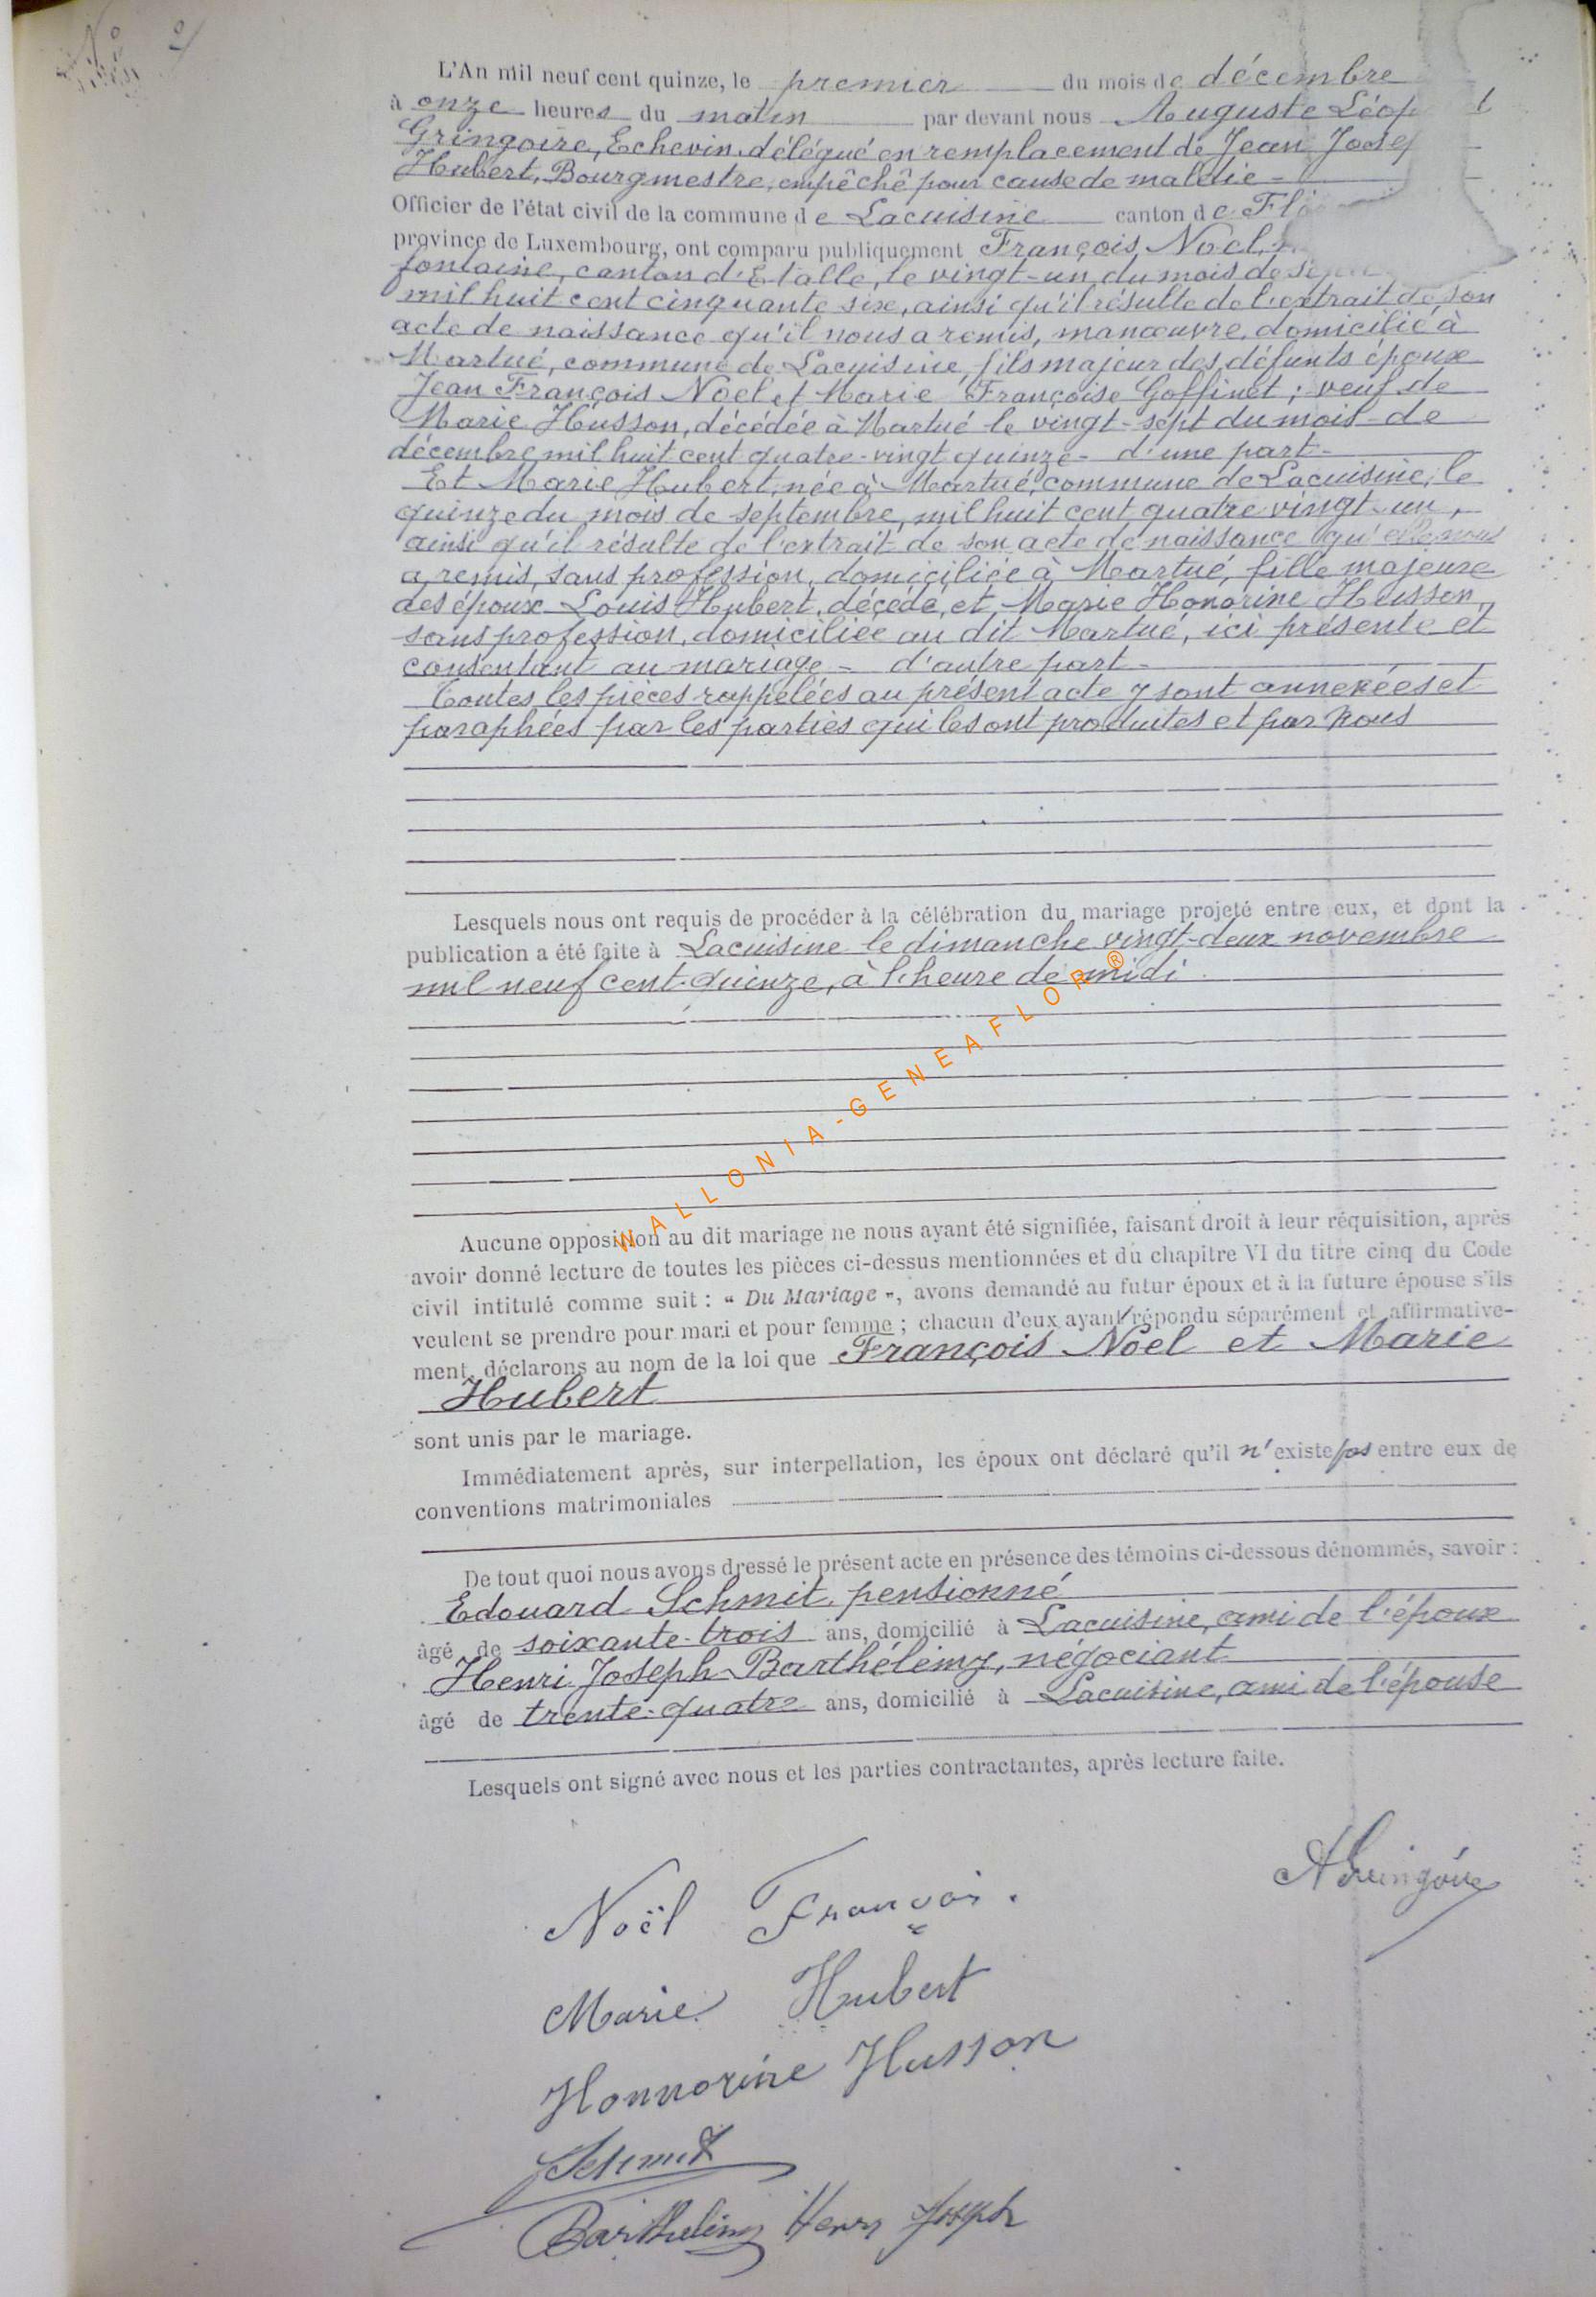 L'An mil neuf cent quinze, le premier du mois de décembre
à onze heures du matin par devant nous Auguste Léop
Gringoire, Echevin, délégué en remplacement de Jean Josep
Hubert, Bourgmestre, empêché pour cause de maladie -
Officier de l'état civil de la commune de Lacuisine canton de Fl
province de Luxembourg, ont comparu publiquement François Noel,
fontaine, canton d'Etalle, le vingt-un du mois de sep
mil huit cent cinquante six, ainsi qu'il résulte de l'extrait de son
acte de naissance qu'il nous a remis, manœuvre, domicilié à
Martué, commune de Lacuisine, fils majeur des défunts époux
Jean François Noel et Marie Françoise Goffinet ; veuf de
Marie Husson, décédée à Martué le vingt-sept du mois de
décembre mil huit cent quatre-vingt quinze - d'une part -
Et Marie Hubert, née à Martué, commune de Lacuisine, le
quinze du mois de septembre, mil huit cent quatre vingt-un,
ainsi qu'il résulte de l'extrait de son acte de naissance qu'elle nous
a remis, sans profession, domiciliée à Martué, fille majeure
des époux Louis Hubert, décédé, et Marie Honorine Husson,
sans profession, domiciliée au dit Martué, ici présente et
consentant au mariage - d'autre part -
Toutes les pièces rappelées au présent acte y sont annexées et
paraphées par les parties qui les ont produites et par nous
Lesquels nous ont requis de procéder à la célébration du mariage projeté entre eux, et dont la
publication a été faite à Lacuisine le dimanche vingt-deux novembre
mil neuf cent-quinze, à l'heure de midi
WALLONIA-GENEAFLOR®
Aucune opposition au dit mariage ne nous ayant été signifiée, faisant droit à leur réquisition, après
avoir donné lecture de toutes les pièces ci-dessus mentionnées et du chapitre VI du titre cinq du Code
civil intitulé comme suit : « Du Mariage », avons demandé au futur époux et à la future épouse s'ils
veulent se prendre pour mari et pour femme ; chacun d'eux ayant répondu séparément et affirmative-
ment, déclarons au nom de la loi que François Noël et Marie
Hubert
sont unis par le mariage.
Immédiatement après, sur interpellation, les époux ont déclaré qu'il n'existe pas entre eux de
conventions matrimoniales
De tout quoi nous avons dressé le présent acte en présence des témoins ci-dessous dénommés, savoir :
Edouard Schmit, pensionné
âgé de soixante-trois ans, domicilié à Lacuisine, ami de l'époux
Henri Joseph Barthélemy, négociant
âgé de trente-quatre ans, domicilié à Lacuisine, ami de l'épouse
Lesquels ont signé avec nous et les parties contractantes, après lecture faite.
AGringoire
Noël François.
Marie Hubert
Honnorine Husson
Schmit
Barthelemy Henry Joseph